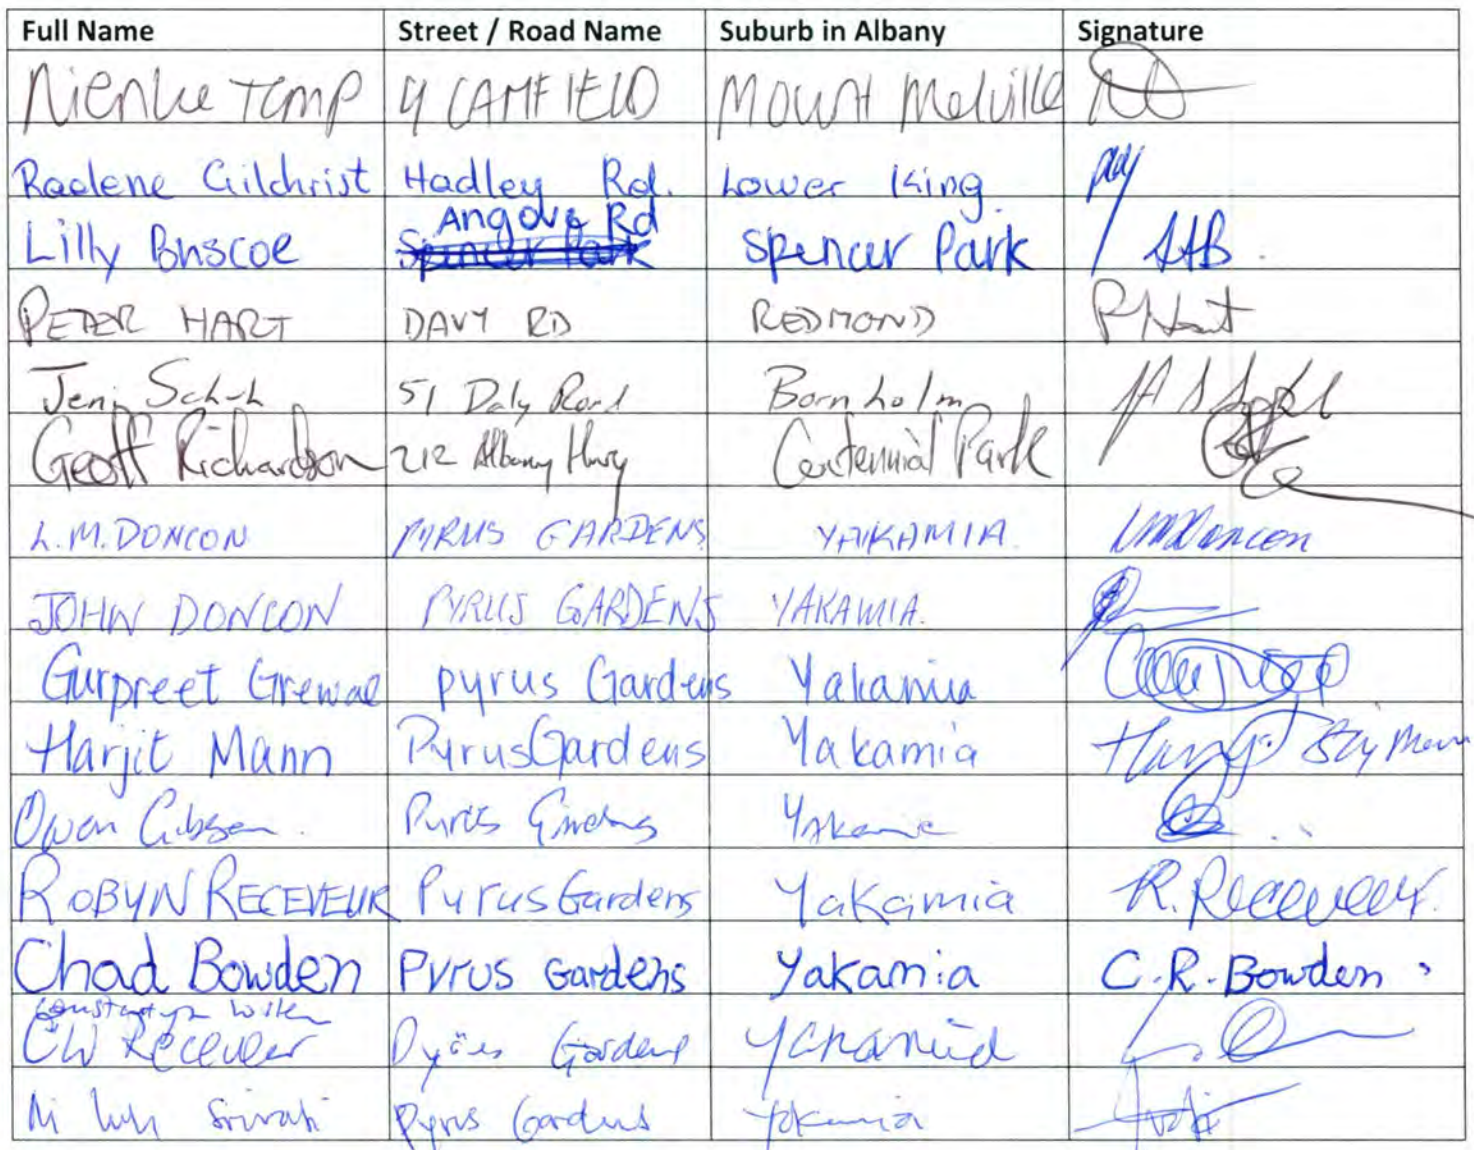 Full Name Street / Road Name Suburb in Albany Signature
Nienke Temp 4 CAMFIELD Mount Melville
Raelene Gilchrist Hadley Rd. Lower King
Lilly Briscoe Angove Rd Spencer Park Spencer Park
PETER HART DAVY RD REDMOND P Hart
Jeni 51 Daly Road Bornholm
Geoff Richardson 212 Albany Hwy Centennial Park
L.M. DONCON PYRUS GARDENS YAKAMIA. LM Doncon
JOHN DONCON PYRUS GARDENS YAKAMIA.
Gurpreet Grewal pyrus Gardens Yakamia
Harjit Mann Pyrus Gardens Yakamia
Owen Gibson. Pyrus Gardens Yakamia
ROBYN RECEVEUR Pyrus Gardens Yakamia R. Receveur.
Chad Bowden Pyrus Gardens Yakamia C.R. Bowden
CW Receveur Pyrus Gardens Yakamia
Ni Luh Pyrus Gardens Yakamia